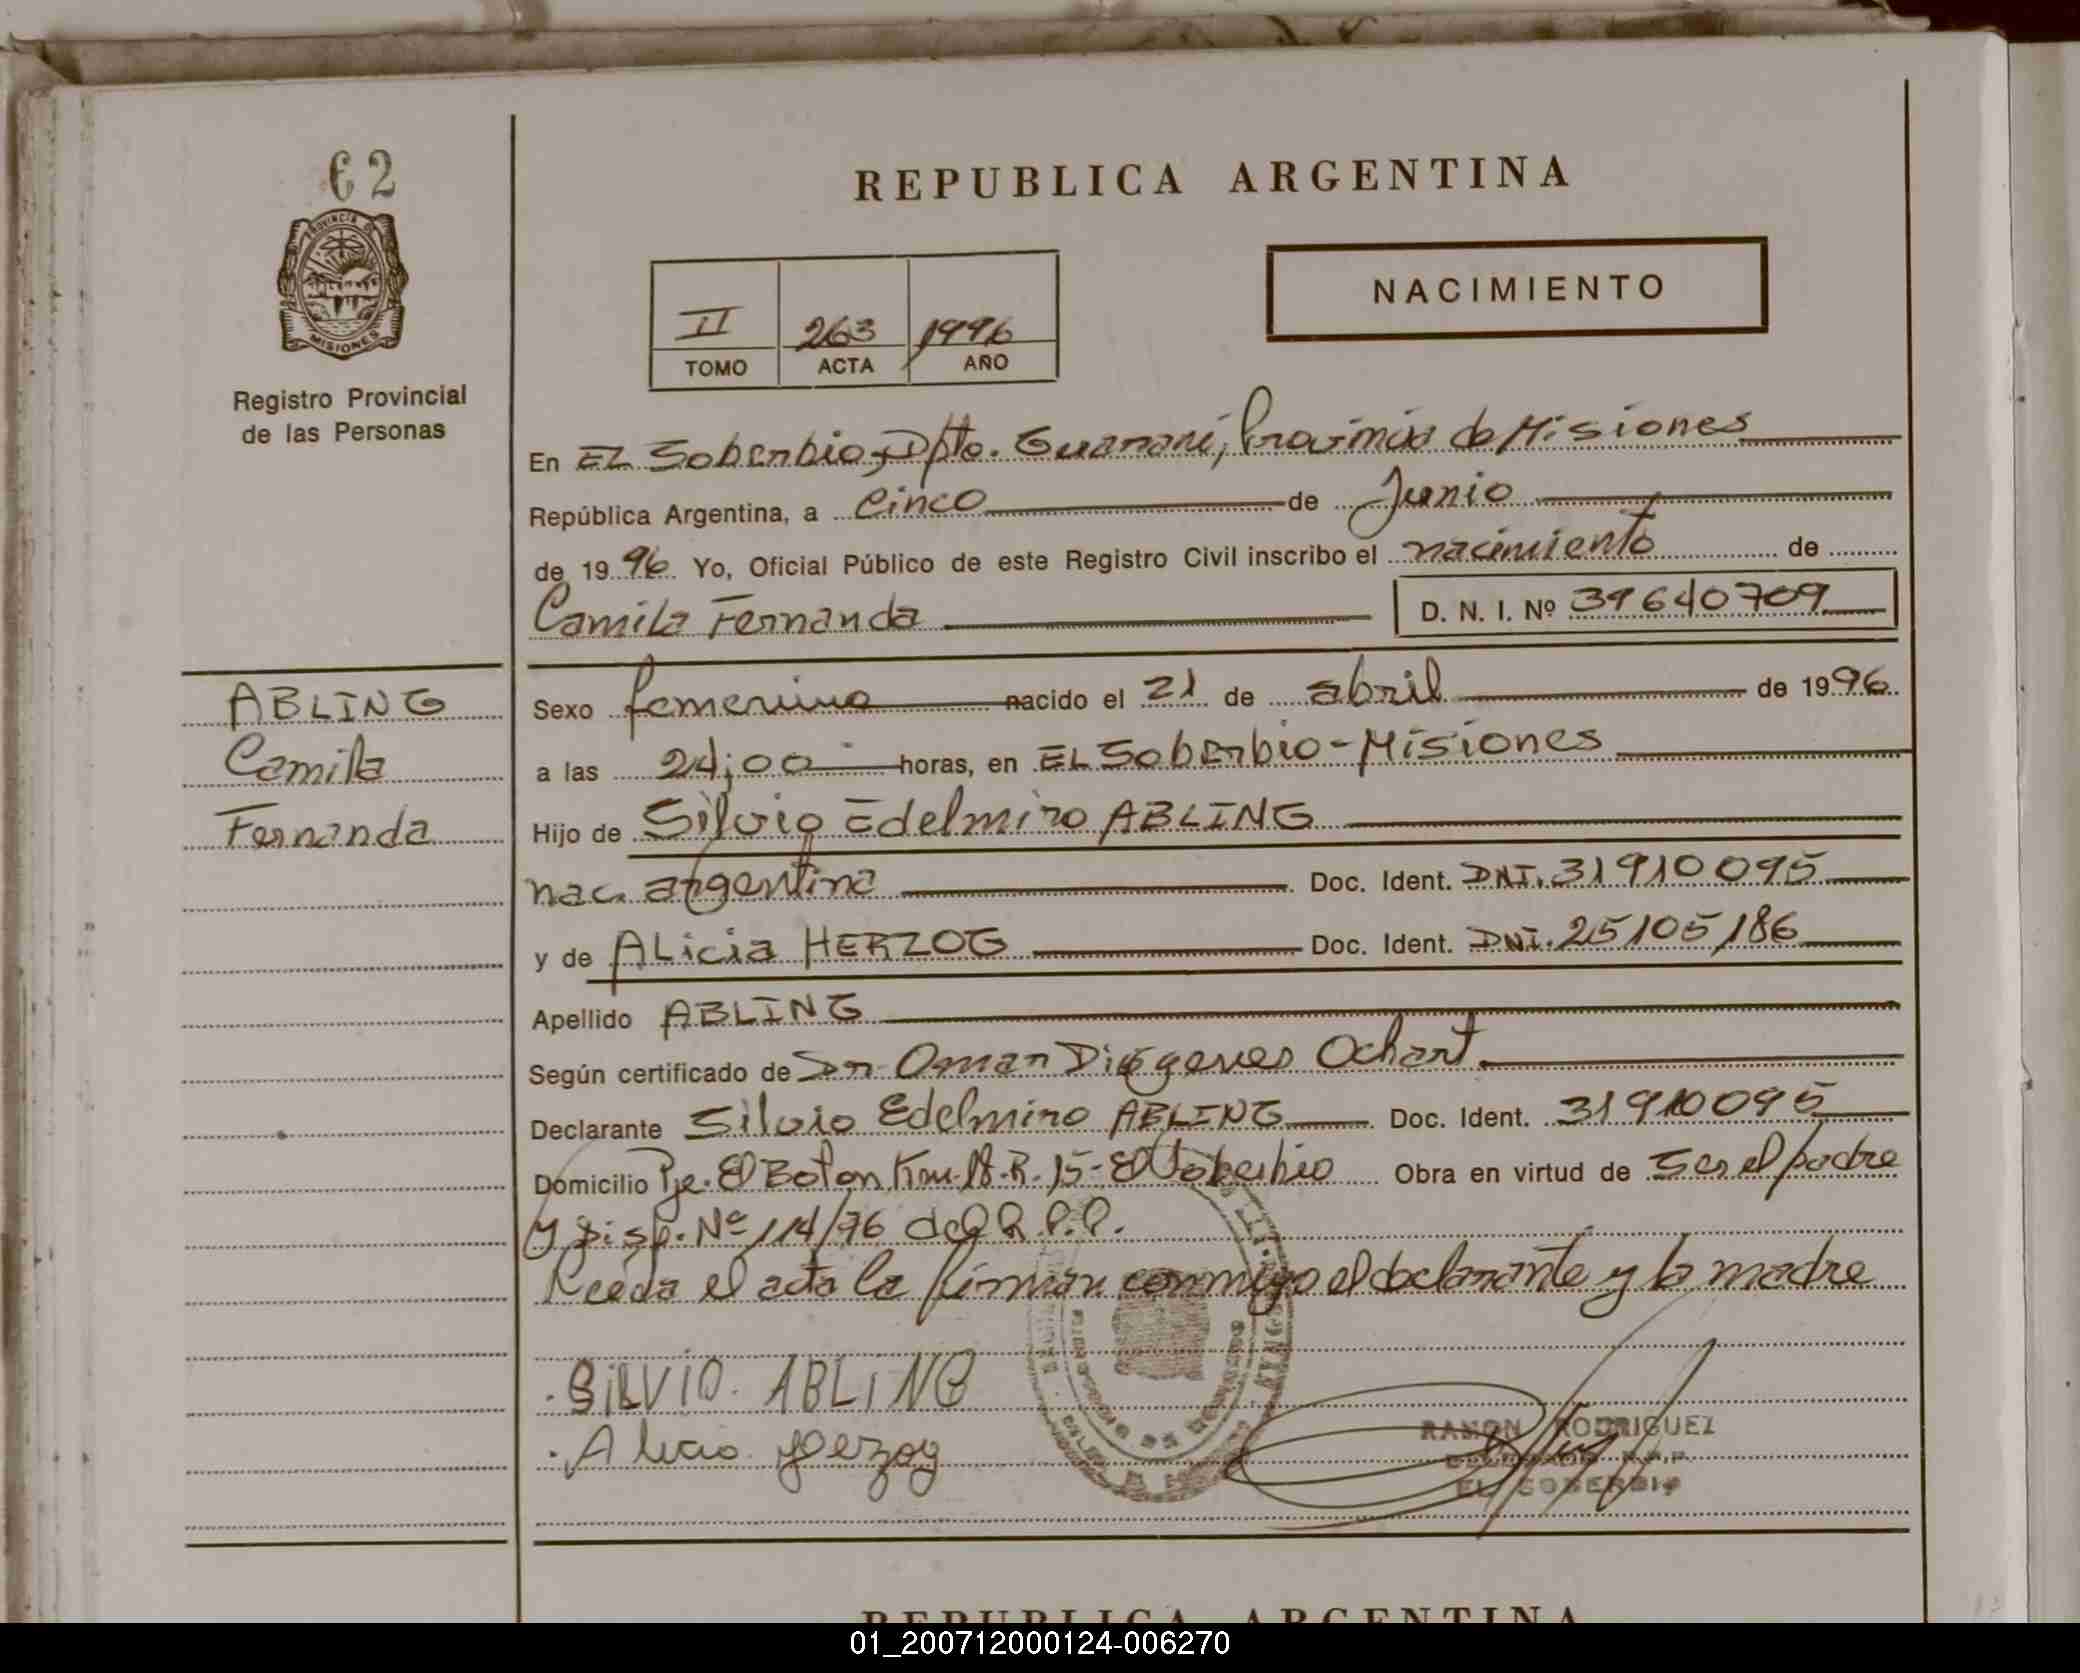 62
PROVINCIA DE
MISIONES
Registro Provincial
de las Personas
REPUBLICA ARGENTINA
NACIMIENTO
II 263 1996
TOMO ACTA AÑO
En EL Soberbio, Dpto. Guaraní, Provincia de Misiones
República Argentina, a Cinco de Junio
de 1996 Yo, Oficial Público de este Registro Civil inscribo el nacimiento de
Camila Fernanda D. N. I. Nº 39640709
ABLING
Camila
Fernanda
Sexo femenino nacido el 21 de abril de 1996
a las 24;00 horas, en EL Soberbio-Misiones
Hijo de Silvio Edelmiro ABLING
nac. argentina Doc. Ident. DNI. 31910095
y de ALicia HERZOG Doc. Ident. DNI. 25105186
Apellido ABLING
Según certificado de Dr. Omar Diógenes Ochart
Declarante Silvio Edelmiro ABLING Doc. Ident. 31910095
Domicilio Pje. El Boton Km. 18. R. 15- El Soberbio Obra en virtud de Ser el padre
y Disp. Nº 114/96 del R.P.P.
Leída el acta la firman conmigo el declarante y la madre
SILVIO ABLING
Alicia Herzog
RAMON RODRIGUEZ
DELEGADO R.P.P.
EL SOBERBIO
REPUBLICA ARGENTINA
01_200712000124-006270